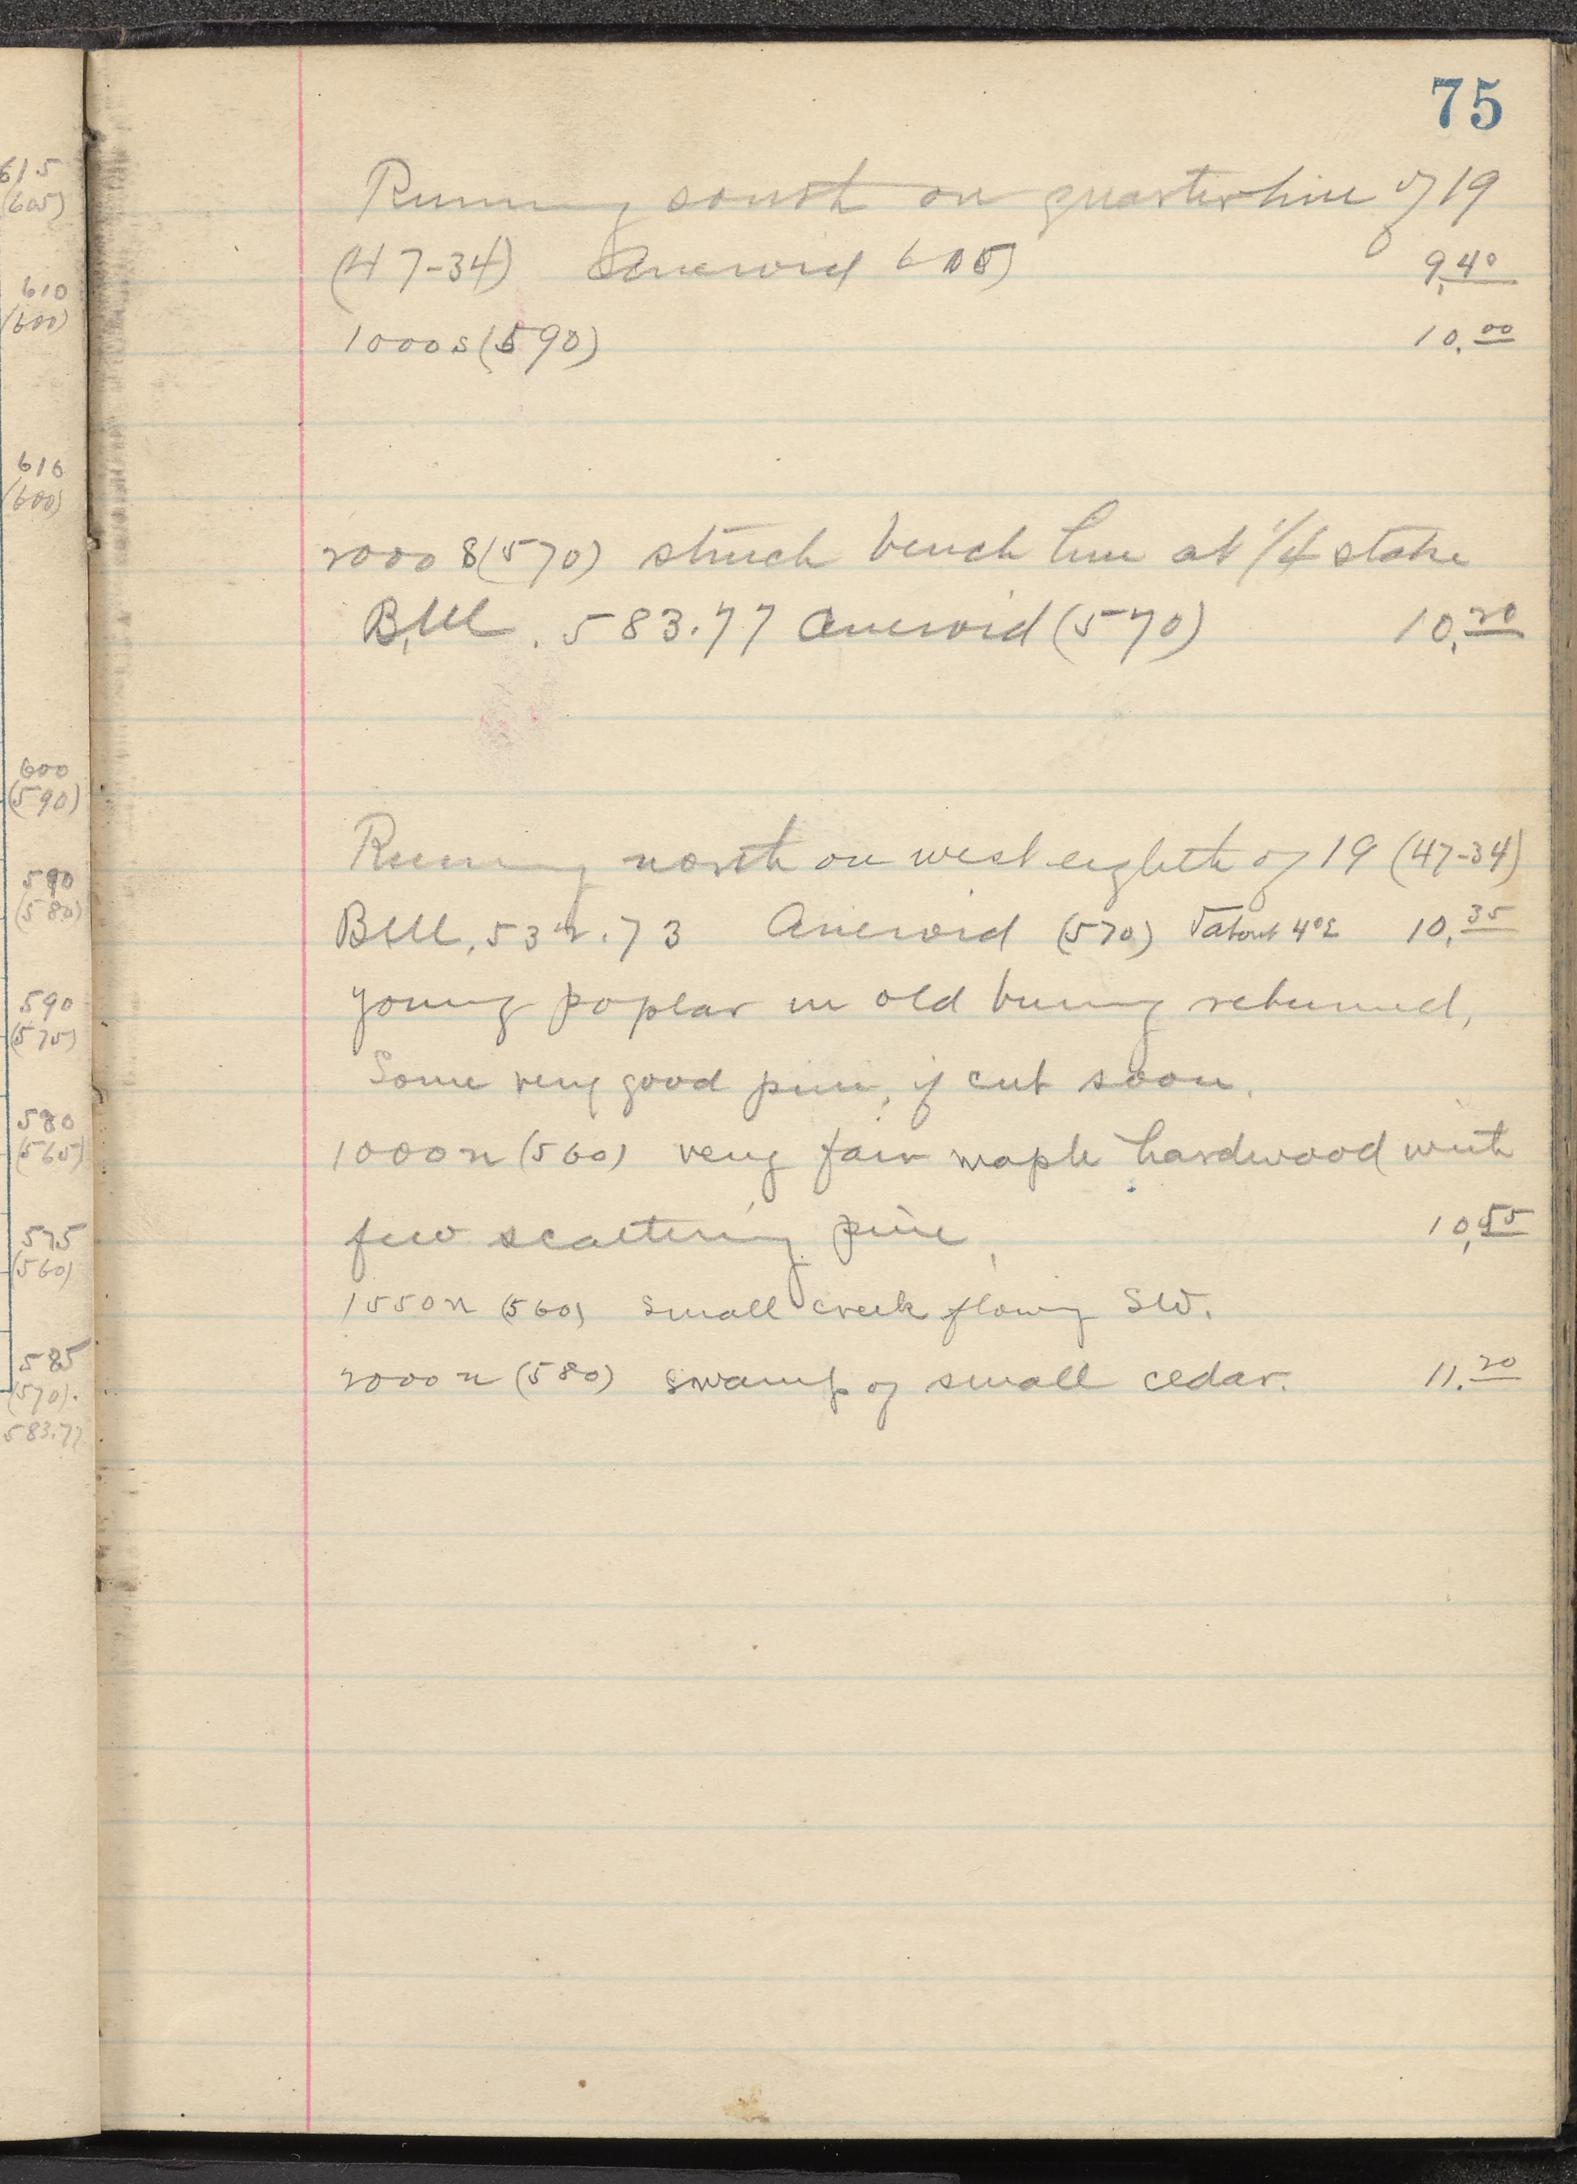 615
(605)
610
(600)
610
(600)
600
(590)
590
(580)
590
(575)
580
(565)
575
(560)
585
(570).
583.77
75
Running south on quarter line of 19
(47-34) Aneroid 605) 9.40
1000 S (590) 10.00
2000 S (570) struck bench line at 1/4 stake
B.M. 583.77 Aneroid (570) 10.20
Running north on west eighth of 19 (47-34)
B.M. 532.73 Aneroid (570) V about 4°E 10.35
young poplar in old burning reburned,
Some very good pine, if cut soon.
1000 n (560) very fair maple hardwood with
few scattering pine, 10.55
1550 n (560) small creek flowing SW.
2000 n (580) swamp of small cedar. 11.20